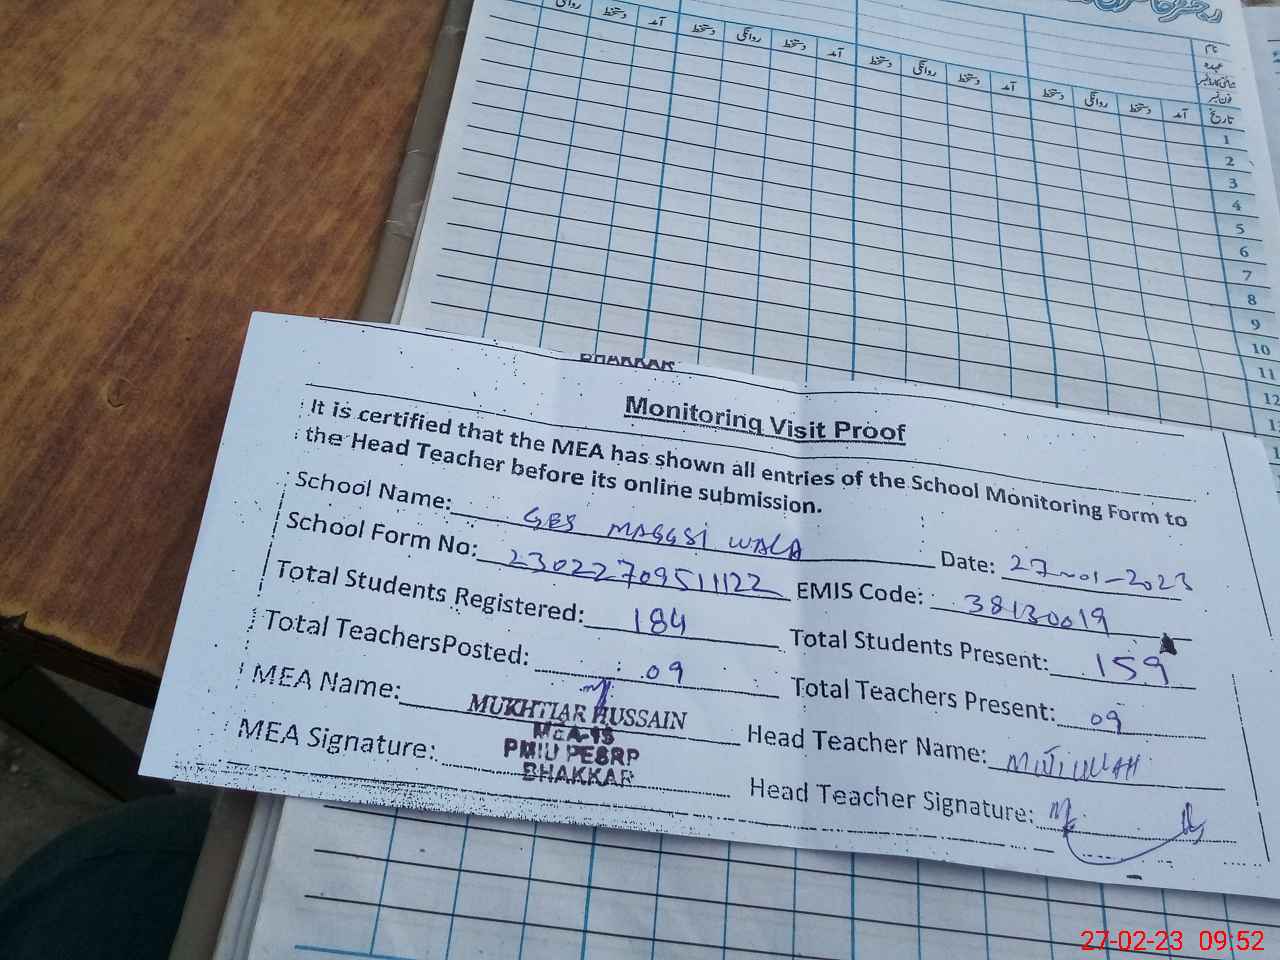 دستخط آمد دستخط روانگی دستخط آمد دستخط روانگی دستخط آمد دستخط روانگی دستخط آمد
نام
عہدہ
فون نمبر
تاریخ
1
2
3
4
5
6
7
8
9
10
11
12
BHAKKAR
Monitoring Visit Proof
It is certified that the MEA has shown all entries of the School Monitoring Form to
the Head Teacher before its online submission.
School Name: GES MAGGSI WALA Date: 27-01-2023
School Form No: 23022709511122 EMIS Code: 38130019
Total Students Registered: 184 Total Students Present: 159
Total TeachersPosted: 09 Total Teachers Present: 09
MEA Name: MUKHTIAR HUSSAIN Head Teacher Name:
MEA-15
PMIU PESRP
BHAKKAR
MEA Signature: Head Teacher Signature:
27-02-23 09:52